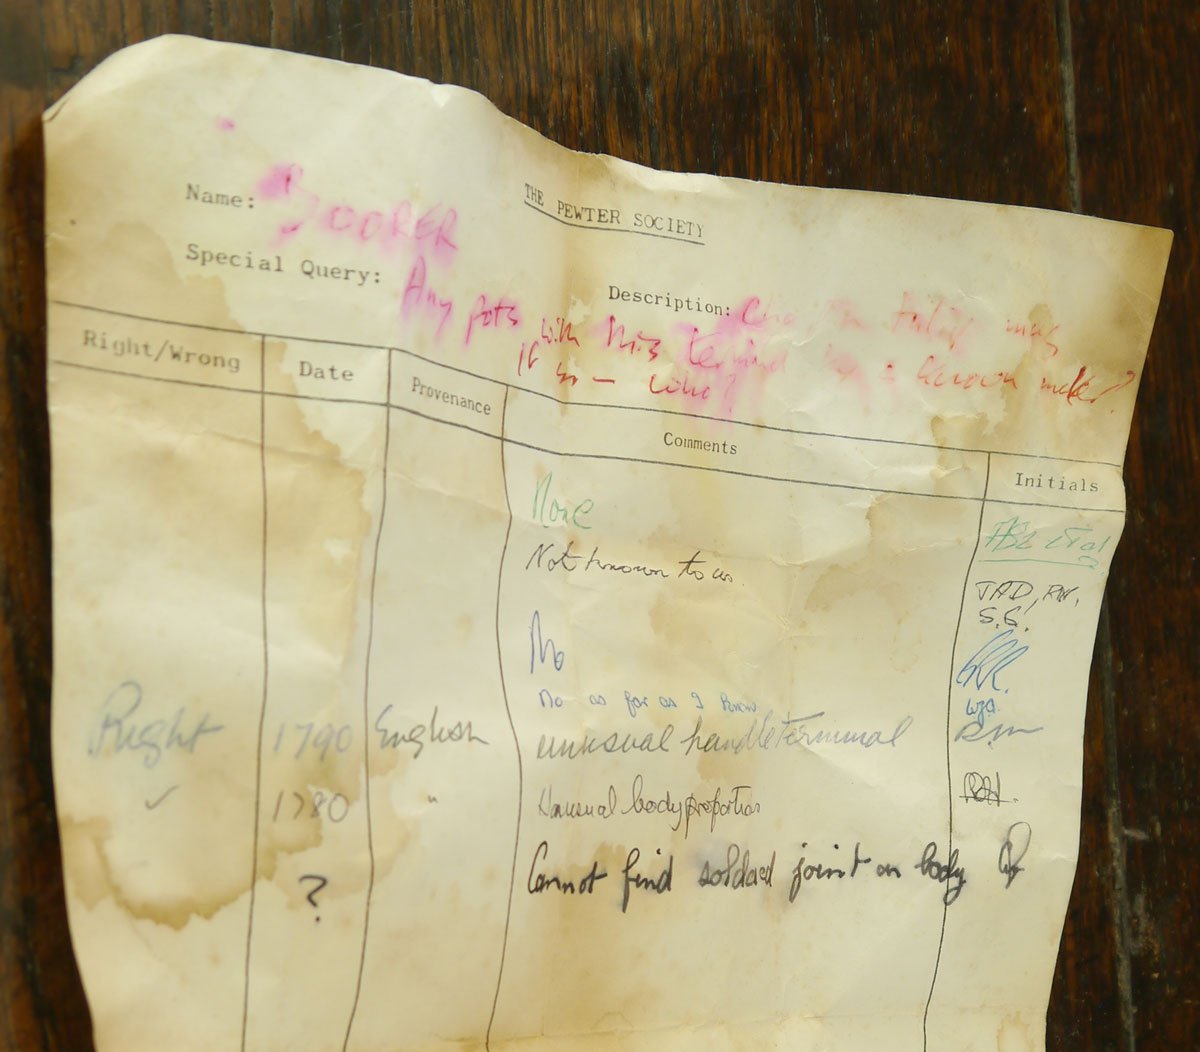 THE PEWTER SOCIETY
Name: BOORER
Special Query: Any pots with this terminal by a known maker?
If so — who?
Description: tulip mug
Right/Wrong Date Provenance Comments Initials
None
Not known to us. JAD, RW.
S.G.
No
No as far as I know
Right 1790 English unusual handle Terminal
✓ 1780 " Unusual body proportions
? Cannot find soldered joint on body